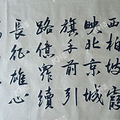 西柏坡霞
映北京城
旗手前引
路億眾續
長征雄心